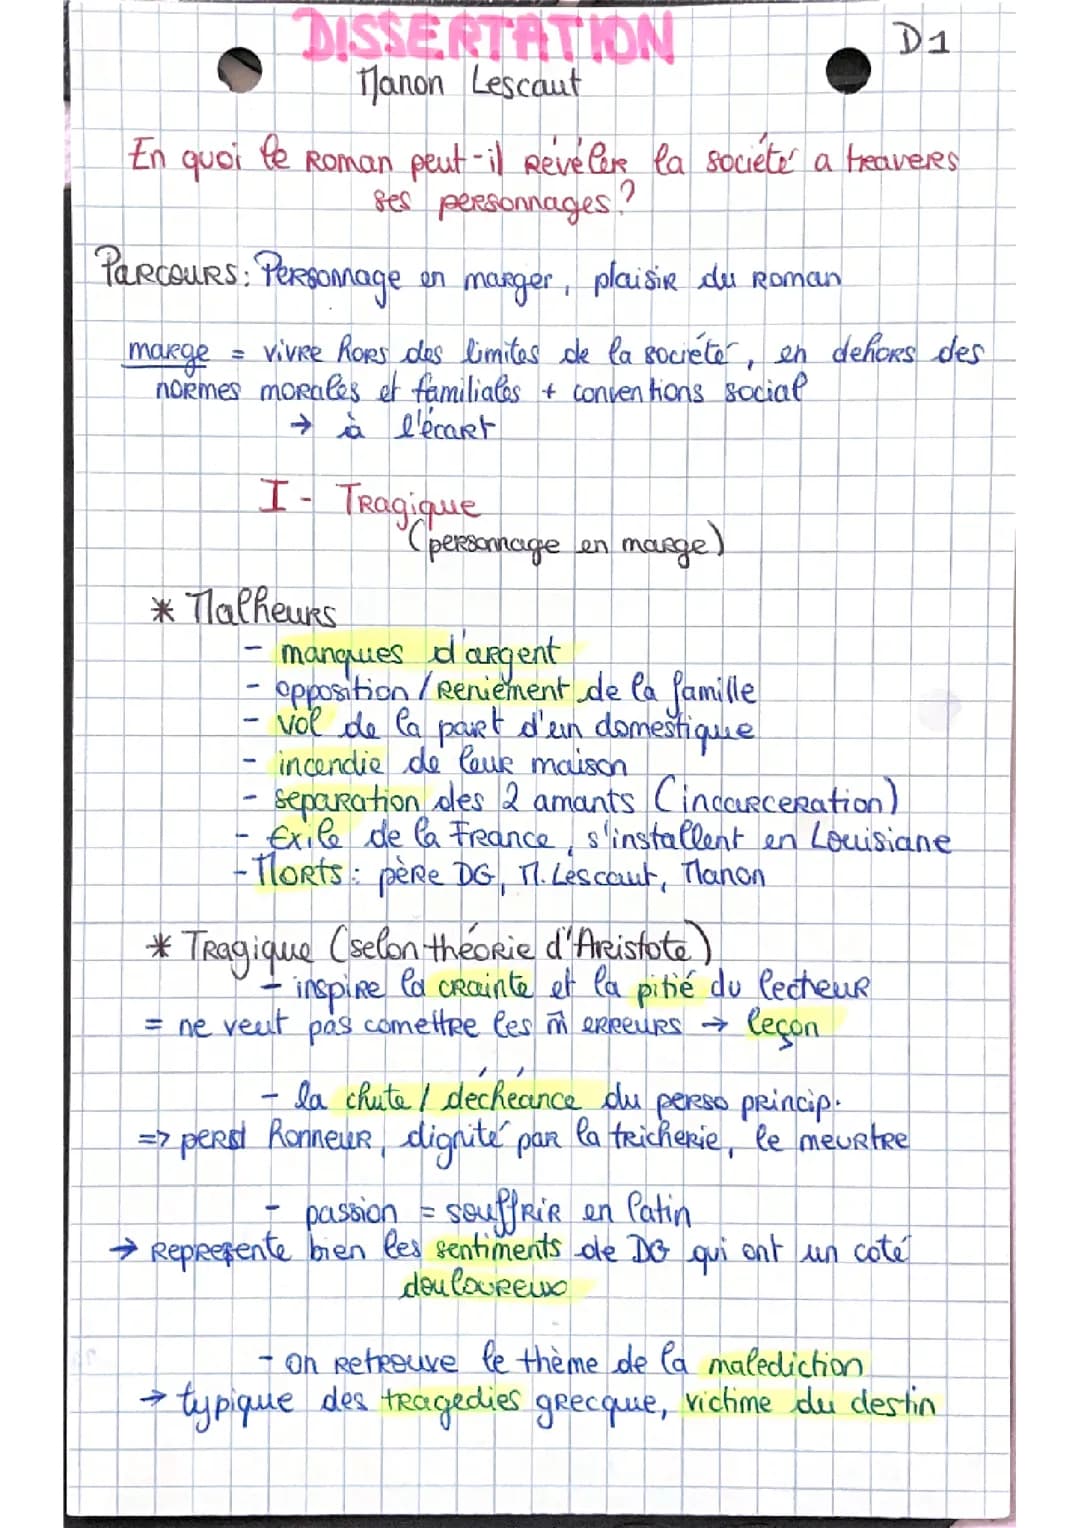 DISSERTATION
D1
Manon Lescaut
En quoi le roman peut-il révéler la société a travers
ses personnages?
Parcours: Personnage en marger, plaisir du roman
marge = vivre hors des limites de la société, en dehors des
normes morales et familiales + conventions social
→ à l'écart
I - Tragique
(personnage en marge)
* Malheurs
- manques d'argent
- opposition / reniement de la famille
- vol de la part d'un domestique
- incendie de leur maison
- separation des 2 amants (incarceration)
- Exile de la France, s'installent en Louisiane
- Morts: père DG, M. Lescaut, Manon
* Tragique (selon théorie d'Aristote)
- inspire la crainte et la pitié du lecteur
= ne veut pas comettre les m̂ erreurs → leçon
- la chute / déchéance du perso princip.
=> perd honneur, dignité par la tricherie, le meurtre
- passion = souffrir en latin
→ Represente bien les sentiments de DG qui ont un coté
douloureux
- on retrouve le thème de la malediction
→ typique des tragedies grecque, victime du destin